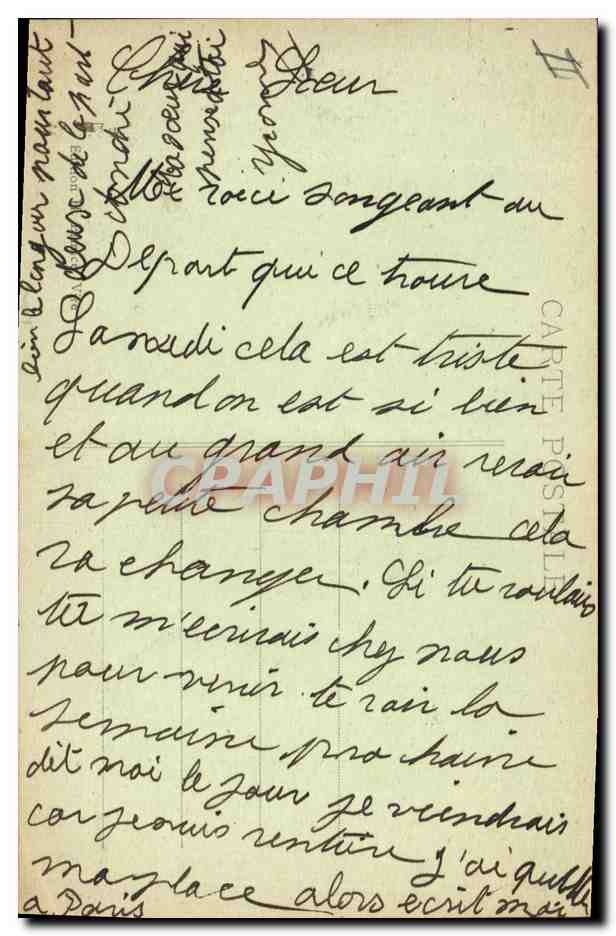 II
Cher Sœur
Me voici songeant au
Depart qui ce trouve
Samedi cela est triste
quand on est si bien
et au grand air revoir
sa petite chambre cela
va changer. Si tu voulais
tu m'ecrirais chez nous
pour venir te voir la
semaine prochaine
dit moi le jour je viendrais
car je suis rentrée j'ai quitté
ma place alors ecrit moi
a Paris
deux de la part
André
Ta soeur qui
pense a toi
Yvonne
CARTE POSTALE
CPAPHIL